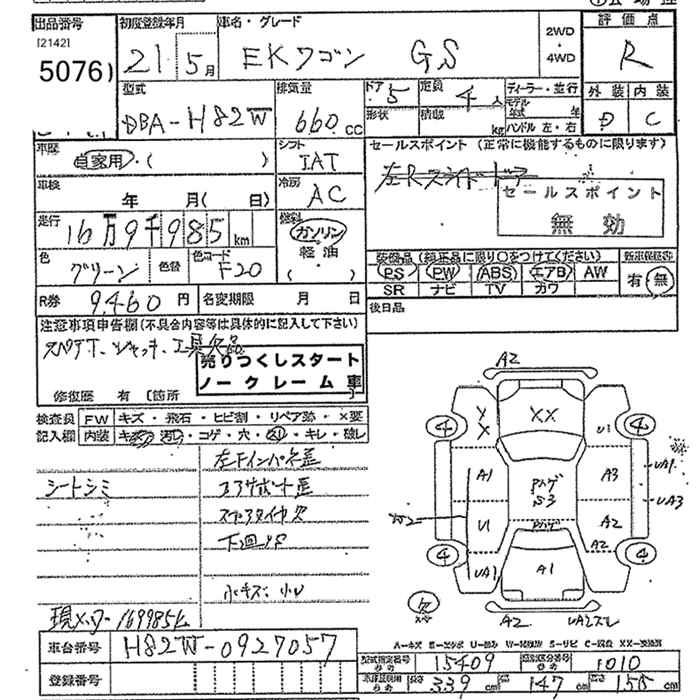 出品番号 初度登録年月 車名・グレード 評価点
[2142]
5076) 21 5月 EKワゴン GS 2WD・4WD R
型式 排気量 ドア 5 定員 4人 ディーラー・並行 外装 内装
DBA-H82W 660cc 形状 積載 kg モデル年式 年 D C
ハンドル 左・右
車歴 自家用・( ) シフト IAT セールスポイント (正常に機能するものに限ります)
左Rスライドドア
車検 年 月( 日) 冷房 AC セールスポイント 無効
走行 16万9千985km 燃料 ガソリン 軽油 ( )
装備品(純正品に限り○をつけてください) 新車保証書
色 グリーン 色替 色コード F20 PS PW ABS エアB AW 有・無
SR ナビ TV カワ
R券 9,460円 名変期限 月 日 後日品
注意事項申告欄(不具合内容等は具体的に記入して下さい)
スペアT、ジャッキ、工具欠品
売りつくしスタート
ノークレーム車
修復歴 有 〔箇所 〕
検査員 FW キズ・飛石・ヒビ割・リペア跡・×要
記入欄 内装 キズ・汚し・コゲ・穴・スレ・キレ・破レ
左Fインパネ歪
シートシミ コアサポート歪
スペアタイヤ欠
下回サビ
小キズ、小U
現メーター169985k
車台番号 H82W-0927057
登録番号
A2
4 XX U1 4
A1 A3 UA1
UA3
U1 A2
A2
4 UA1 A1 4
A2 UA2スレ
A-キズ E-エクボ U-凹み W-補修跡 S-サビ C-腐食 XX-交換済
型式指定番号 15409 類別区分番号 1010
長さ 339cm 147cm 高さ 155cm